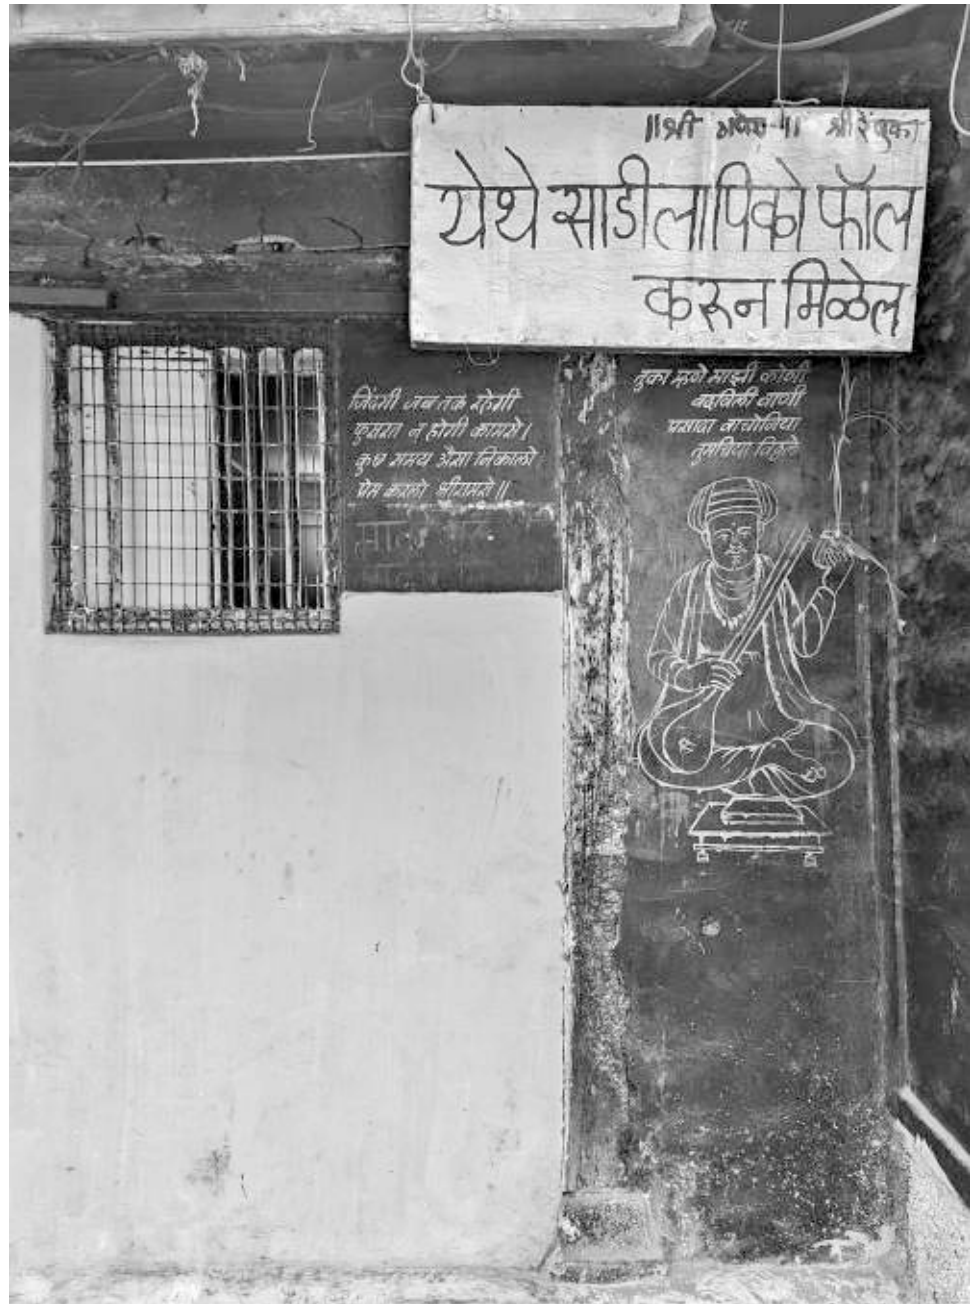 ॥श्री गणेश॥ श्री रेणुका
येथे साडीला पिको फॉल
करून मिळेल
जिंदगी जब तक रहेगी
फुसरत न होगी कामसे।
कुछ समय ऐसा निकालो
प्रेम करलो श्रीरामसे॥
तुका म्हणे माझी कोणी
वदविली वाणी
प्रसादा वाचोनिया
तुमचिया विठ्ठले